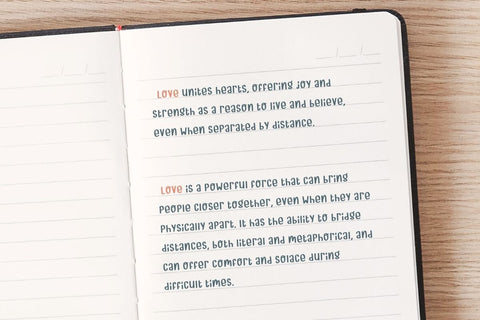 Love unites hearts, offering joy and
strength as a reason to live and believe,
even when separated by distance.
Love is a powerful force that can bring
people closer together, even when they are
physically apart. It has the ability to bridge
distances, both literal and metaphorical, and
can offer comfort and solace during
difficult times.